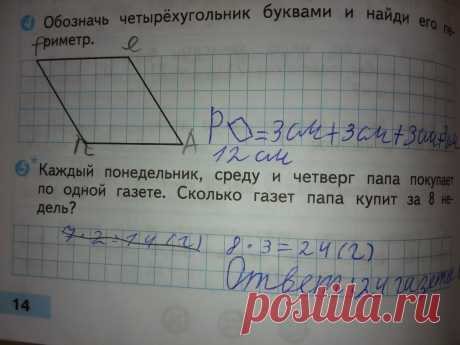 4 Обозначь четырёхугольник буквами и найди его пе-
риметр.
е
А
Р = 3см+3см+3см+3см
12 см
5* Каждый понедельник, среду и четверг папа покупает
по одной газете. Сколько газет папа купит за 8 не-
дель?
7·2=14(г) 8·3=24(г)
Ответ: 24 газета
14
postila.ru